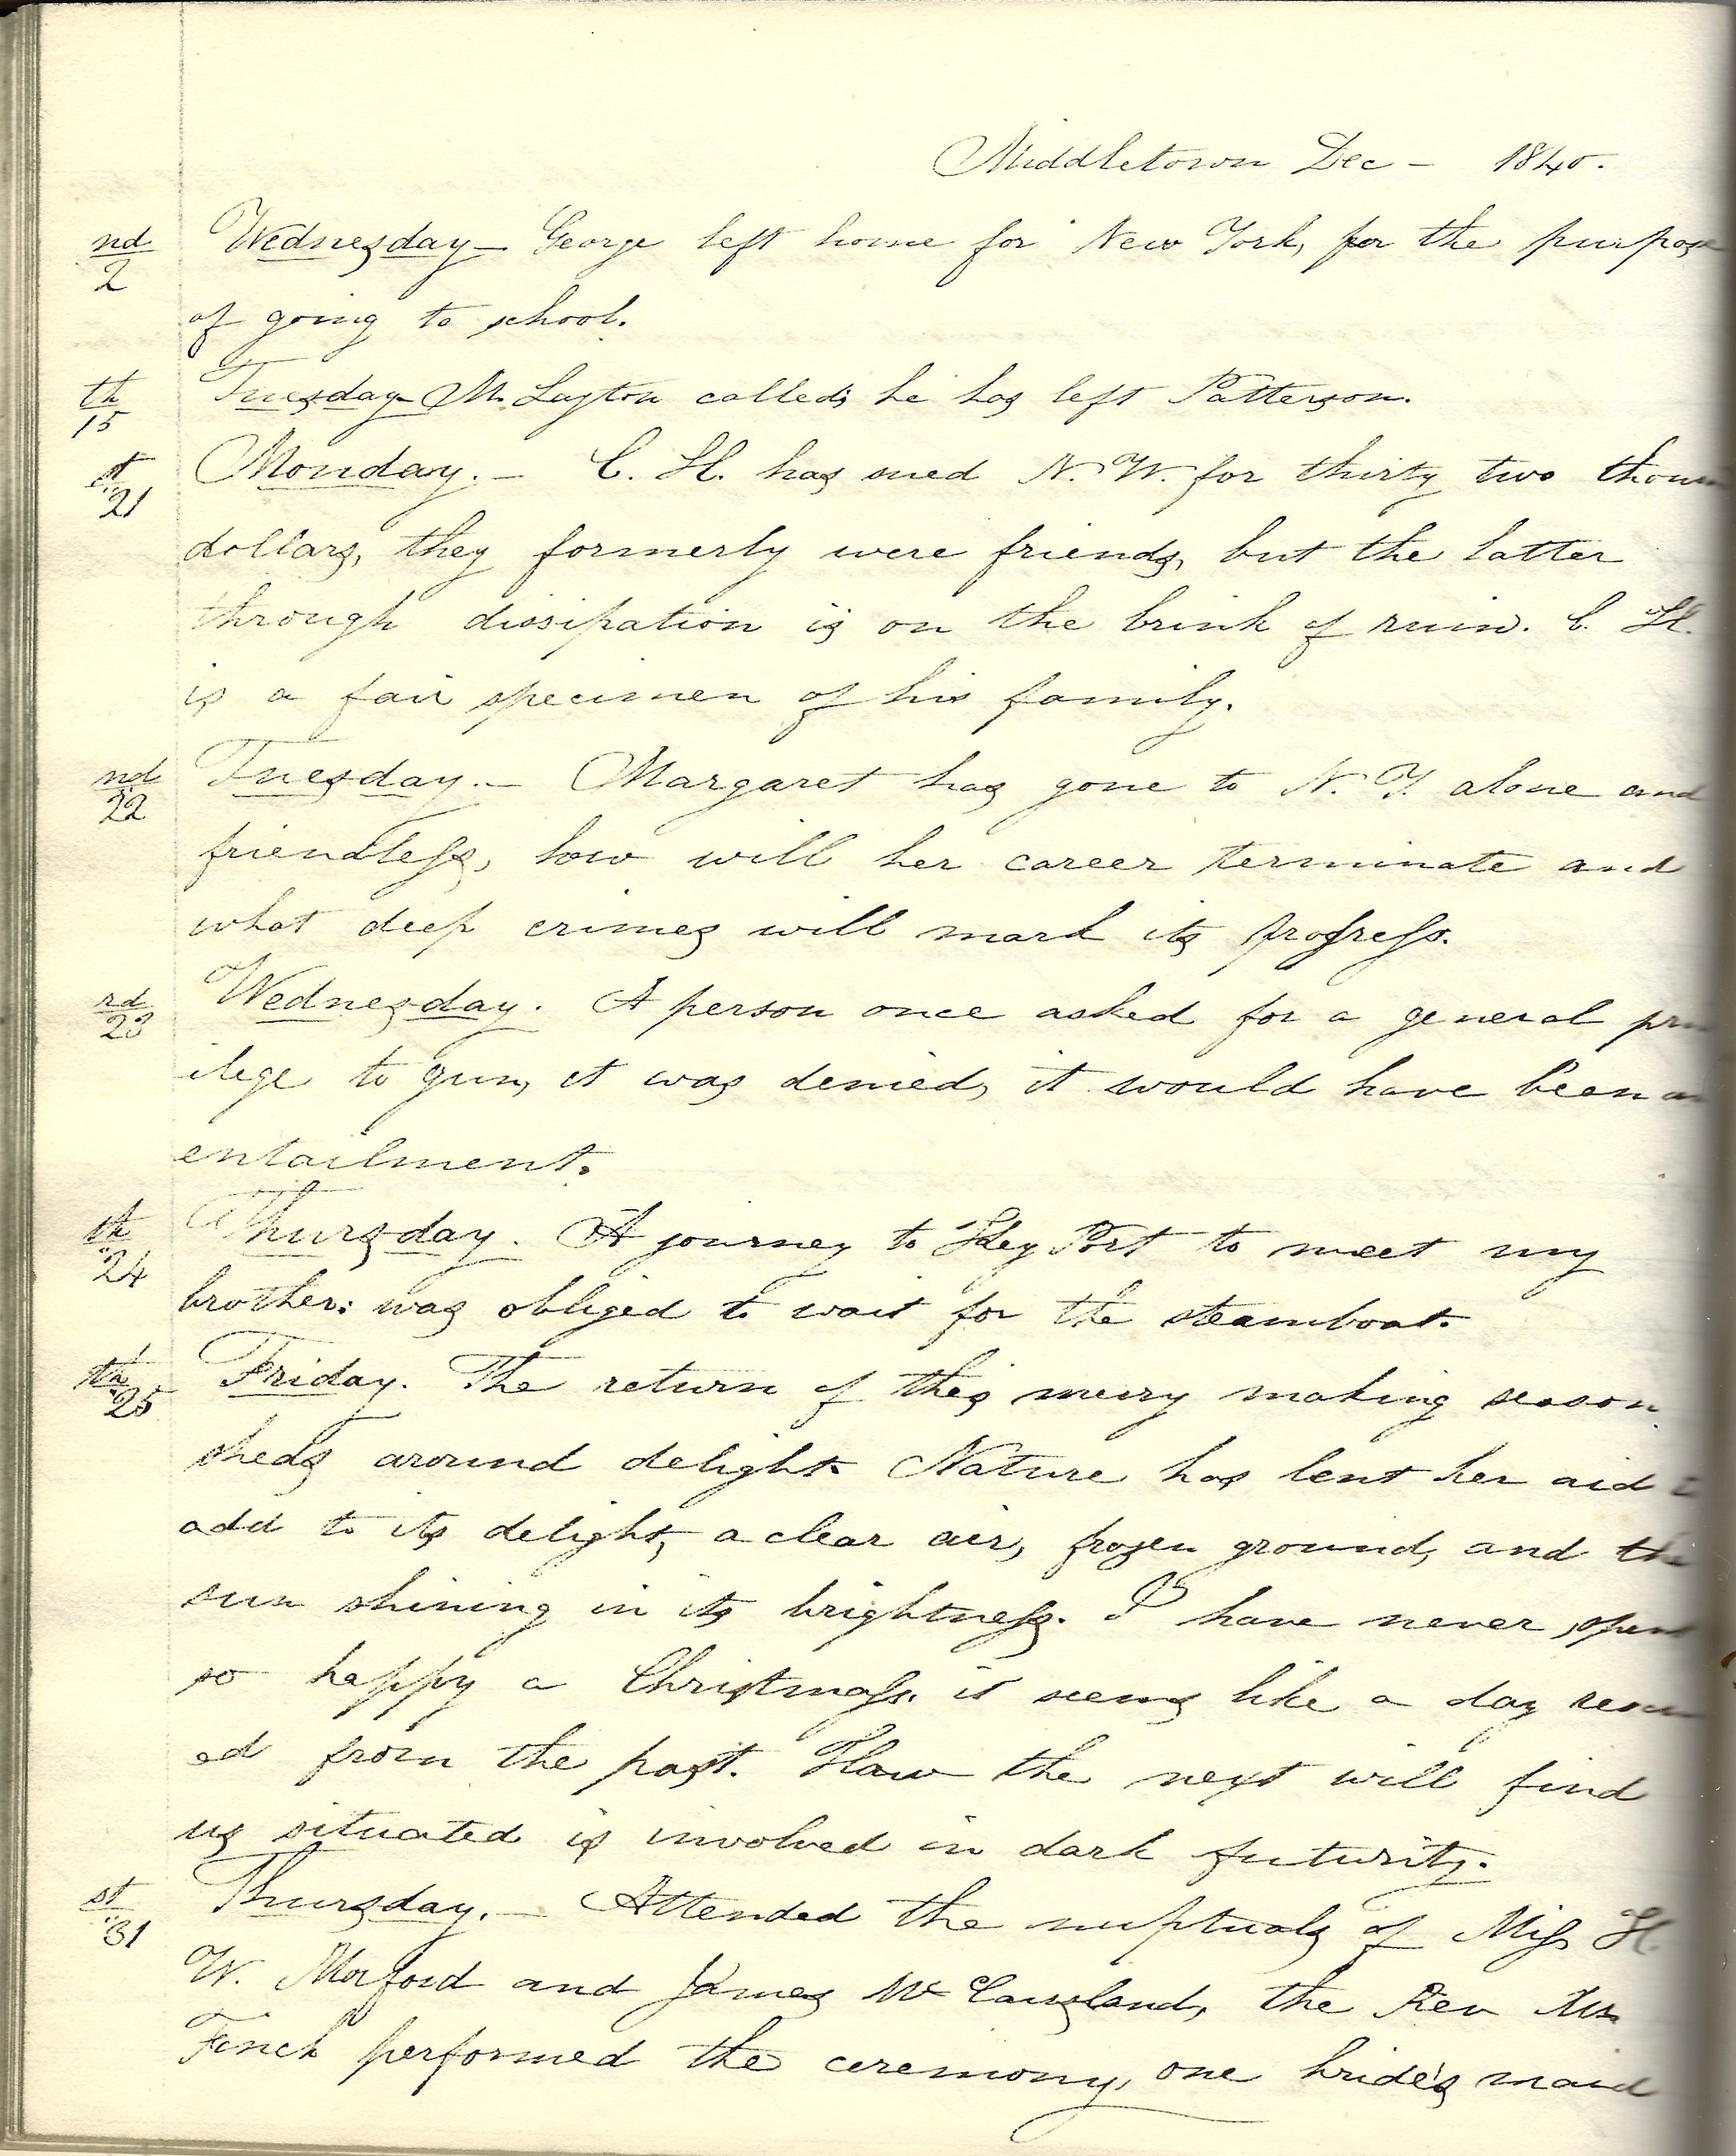 Middletown Dec - 1840.
nd
2 Wednesday - George left home for New York, for the purpose
of going to school.
th
15 Tuesday - M. Layton called; he has left Patterson.
st
21 Monday. - C. H. has sued N. W. for thirty two
dollars, they formerly were friends, but the latter
through dissipation is on the brink of ruin. C. H.
is a fair specimen of his family.
nd
22 Tuesday. - Margaret has gone to N. Y. alone and
friendless, how will her career terminate and
what deep crimes will mark its progress.
rd
23 Wednesday. A person once asked for a general
ilege to gun, it was denied, it would have been
entailment.
th
24 Thursday. A journey to Key Port to meet my
brother: was obliged to wait for the steamboat.
th
25 Friday. The return of this merry making season
sheds around delight. Nature has lent her aid
add to its delight, a clear air, frozen ground, and the
sun shining in its brightness. I have never spent
so happy a Christmass. it seems like a day
ed from the past. How the next will find
us situated is involved in dark futurity.
st
31 Thursday. - Attended the nuptuals of Miss H.
W. Morford and James McCausland, the Rev Mr.
Finch performed the ceremony, one bride's maid